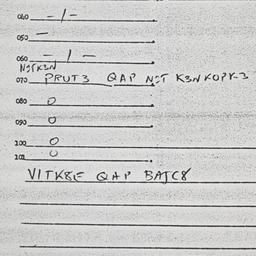 040 - / -
050 -
060 - / -
NOTK3N
070 PRUT3 QAP NOT K3NKOPK3
080 0
090 0
100 0
101 0
VITK8F QAP BAJC8